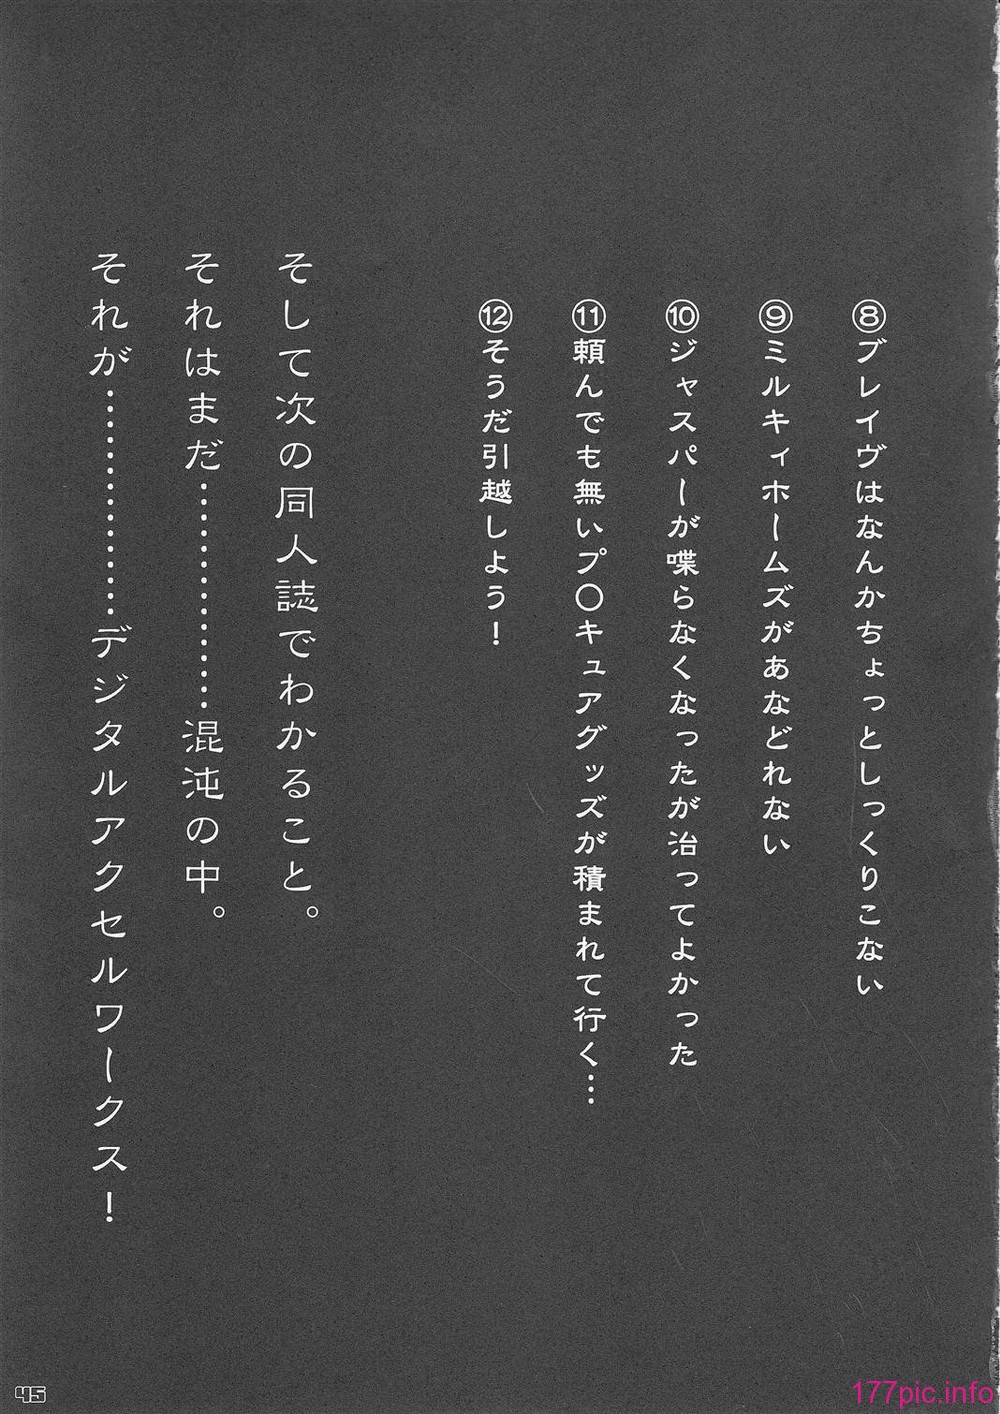 ⑧ブレイヴはなんかちょっとしっくりこない
⑨ミルキィホームズがあなどれない
⑩ジャスパーが喋らなくなったが治ってよかった
⑪頼んでも無いプ〇キュアグッズが積まれて行く…
⑫そうだ引越しよう！
そして次の同人誌でわかること。
それはまだ……………混沌の中。
それが……………デジタルアクセルワークス！
45
177pic.info